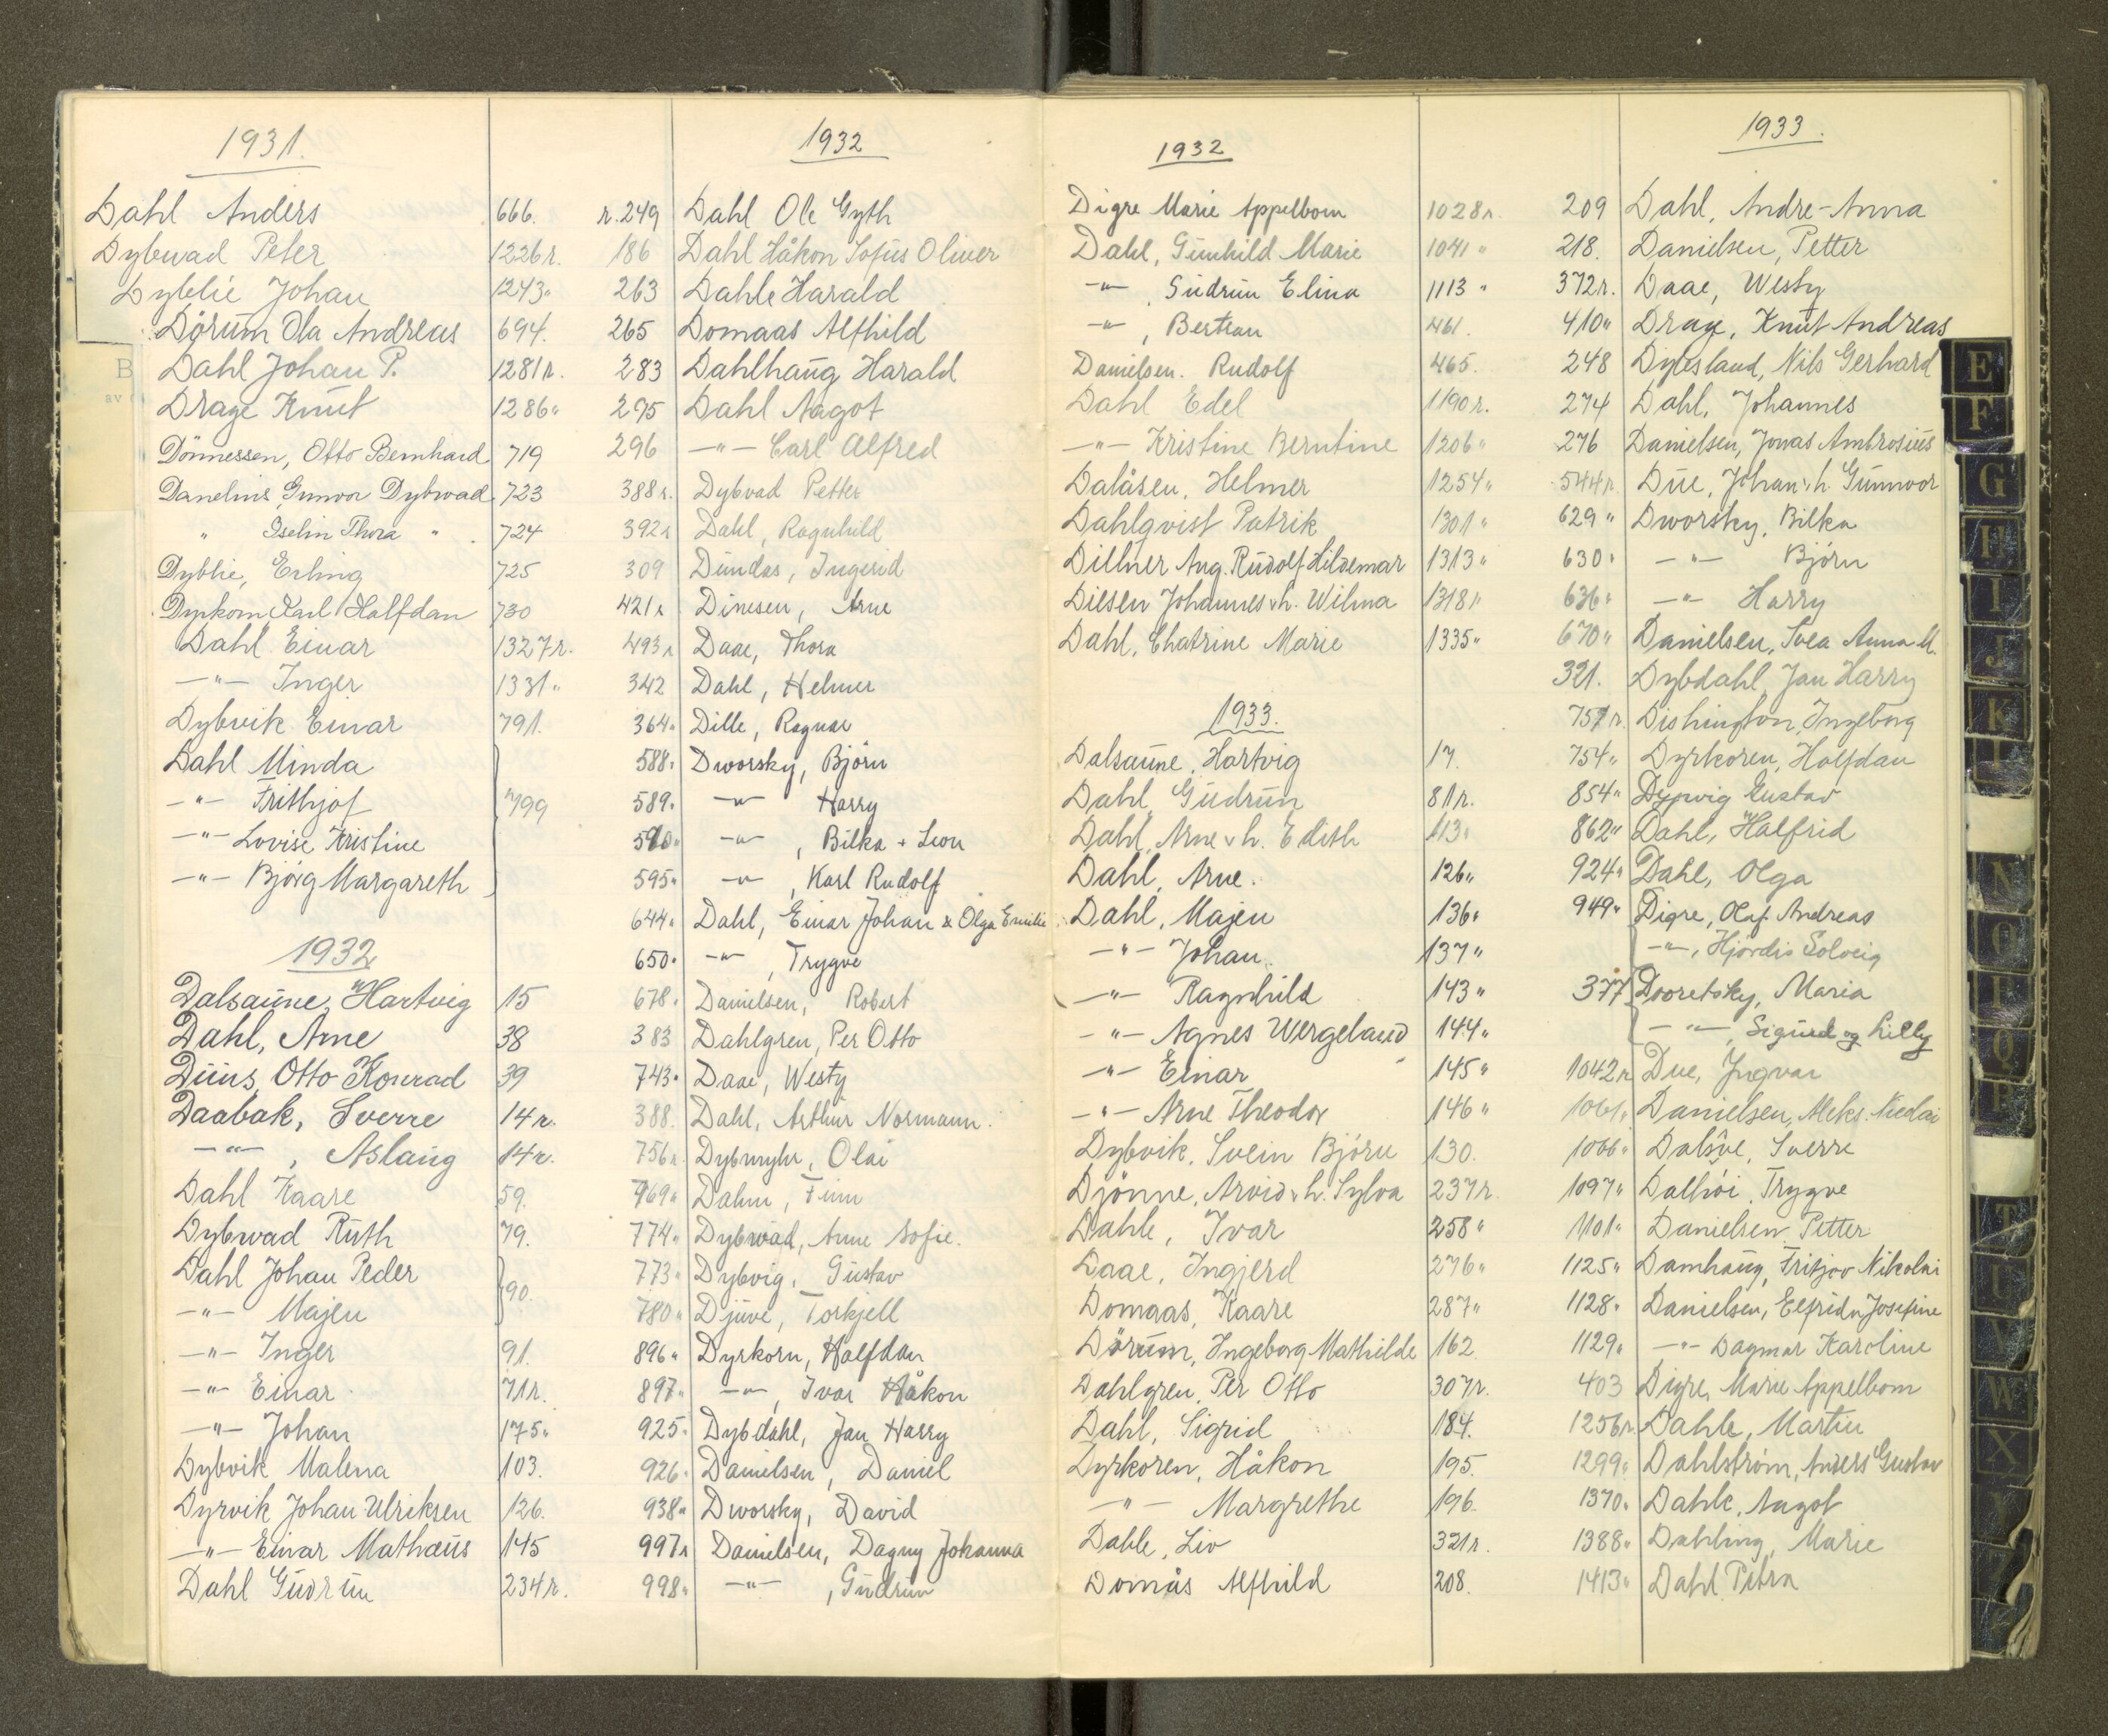 1931.
Dahl Anders 666.
Dybwad Peter 1226 r.
Dyblie Johan 1243 "
Dørum Ola Andreas 694.
Dahl Johan P. 1281 r.
Drage Knut 1286 "
Dønnessen, Otto Bernhard 719
Danelius, Gunvor Dybwad 723
" Iselin Thora " 724
Dyblie, Erling 725
Dyrkorn Karl Halfdan 730
Dahl Einar 1327 r.
-"- Inger 1331 "
Dybvik Einar 791.
Dahl Minda
-"- Frithjof 799
-"- Lovise Kristine
-"- Bjørg Margareth
1932
Dalsaune, Hartvig 15
Dahl, Arne 38
Diius, Otto Konrad 39
Daabak, Sverre 14 r.
-"-, Aslaug 14 r.
Dahl Kaare 59.
Dybwad Ruth 79.
Dahl Johan Peder
-"- Majen 90.
-"- Inger 91.
-"- Einar 71 r.
-"- Johan 175 "
Dybvik Malena 103.
Dyrvik Johan Ulriksen 126.
-"- Einar Mathæus 145
Dahl Gudrun 234 r.
1932
r. 249 Dahl Ole Gyth
186 Dahl Håkon Sofus Oliver
263 Dahle Harald
265 Domaas Alfhild
283 Dahlhaug Harald
295 Dahl Aagot
296 -"- Carl Alfred
388 r. Dybvad Petter
392 r Dahl, Ragnhild
309 Dundas, Ingerid
421 r Dinesen, Arne
493 r Daae, Thora
342 Dahl, Helmer
364 " Dille, Ragnar
588 " Dworsky, Bjørn
589 " -"- Harry
590 " -"-, Bilka + Leon
595 " -"-, Karl Rudolf
644 " Dahl, Einar Johan & Olga Emilie
650 " -"-, Trygve
678 " Danielsen, Robert
383 Dahlgren, Per Otto
743 " Daae, Westy
388. Dahl, Arthur Normann.
756 r. Dybmyhr, Olai
769 " Dahm, Finn
774 " Dybwad, Anne Sofie.
773 " Dybvig, Gustav
780 " Djuve, Torkjell
896 " Dyrkorn, Halfdan
897 " -"-, Ivar Håkon
925 " Dybdahl, Jan Harry
926 " Danielsen, Daniel
938 " Dworsky, David
997 r Danielsen, Dagny Johanna
998 " -"-, Gudrun
1932
Digre Marie Appelbom 1028 r.
Dahl, Gunhild Marie 1041 "
-"-, Gudrun Elina 1113 "
-"-, Bertran 461.
Danielsen. Rudolf 465.
Dahl Edel 1190 r.
-"- Kristine Berntine 1206 "
Dalåsen, Helmer 1254 "
Dahlqvist Patrik 1301 "
Dillner Aug. Rudolf Hildemar 1313 "
Diesen Johannes v h. Wilma 1318 "
Dahl, Chatrine Marie 1335 "
1933.
Dalsaune, Hartvig 17.
Dahl, Gudrun 81 r.
Dahl, Arne v h. Edith 113 "
Dahl, Arne. 126 "
Dahl, Majen 136 "
-"- Johan. 137 "
-"- Ragnhild 143 "
-"- Agnes Wergeland 144 "
-"- Einar 145 "
-"- Arne Theodor 146 "
Dybvik, Svein Bjørn 130.
Djønne, Arvid v h. Sylva 237 r.
Dahle, Ivar 258 "
Daae, Ingjerd 276 "
Domaas, Kaare 287 "
Dørum, Ingeborg Mathilde 162
Dahlgren, Per Otto 307 r.
Dahl, Sigrid 184.
Dyrkoren, Håkon 195.
-"- Margrethe 196.
Dahle, Liv 321 r.
Domås Alfhild 208.
1933.
209 Dahl, Andre-Anna
218. Danielsen, Petter
372 r. Daae, Westy
410 " Drage, Knut Andreas
248 Dyresland, Nils Gerhard
274 Dahl, Johannes
276 Danielsen, Jonas Ambrosius
544 r. Due, Johan v. h. Gunnvor
629 " Dworsky, Bilka
630 " -"- Bjørn
636 " -"- Harry
670 " Danielsen, Svea Anna M.
321. Dybdahl, Jan Harry
757 r. Dishington, Ingeborg
754 " Dyrkoren, Halfdan
854 " Dypvig Gustav
862 " Dahl, Halfrid
924 " Dahl, Olga
949 " Digre, Olaf Andreas
-"-, Hjørdis Solveig
377 Dvoretsky, Maria
-"-, Sigurd og Lilly
1042 r Due, Ingvar
1061 " Danielsen, Aleks. Nicolai
1066 " Dalsve, Sverre
1097 " Dalhói, Trygve
1101 " Danielsen, Petter
1125 " Damhaug, Fritjov Nikolai
1128 " Danielsen, Elfrida Josefine
1129 " -"- Dagmar Karoline
403 Digre, Marie Appelbom
1256 r. Dahle, Martin
1299 " Dahlstrøm, Anders Gustav
1370 " Dahle, Aagot
1388 " Dahling, Marie
1413 " Dahl Petra
B
av
E
F
G
H
I
J
K
L
N
O
P
Q
R
T
U
V
W
X
Y
Z